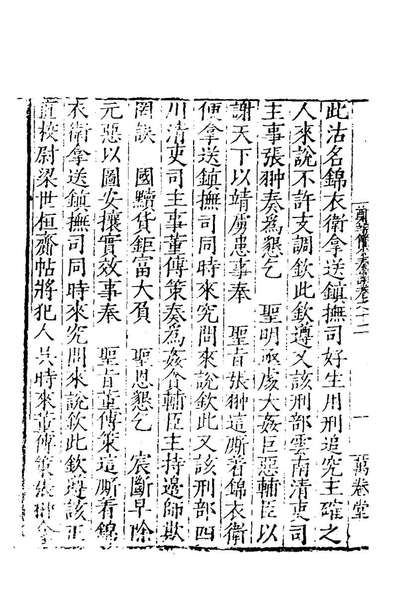 此沽名錦衣衛拿送鎮撫司好生用刑追究主確之
人來說不許支調欽此欽遵又該刑部雲南清吏司
主事張翀奏爲懇乞　聖明亟處大姦巨惡輔臣以
謝天下以靖虜患事奉　聖旨張翀這厮着錦衣衛
便拿送鎮撫司同時來究問來說欽此又該刑部四
川清吏司主事董傳策奏爲姦貪輔臣主持邊師欺
罔誤　國黷貨鉅富大負　聖恩懇乞　宸斷早除
元惡以圖安攘實效事奉　聖旨董傳策這厮看錦
衣衛拿送鎮撫司同時來究問來說欽此欽遵該正
直校尉梁世桓齋帖將犯人吳時來董傳策張翀
一
萬卷堂